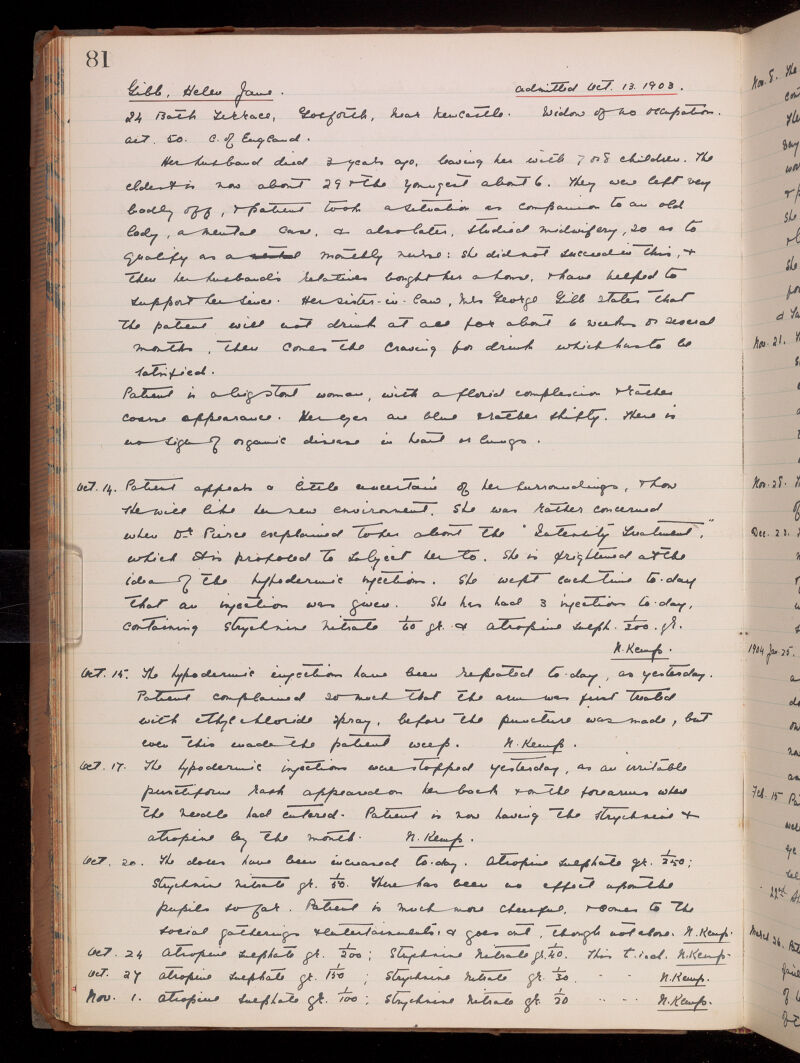 81
Gibb, Helen Jane. admitted Oct. 13. 1903.
24 Bath Terrace, Gosforth, near Newcastle. Widow of no occupation.
aet. 50. C. of England.
Her husband died 3 years ago, leaving her with 7 or 8 children. The
eldest is now about 29 & the youngest about 6. They were left very
badly off, & patient took a situation as companion to an old
lady, a mental case, & also later, studied midwifery, so as to
qualify as a monthly nurse: she did not succeed in this, &
then her husband's relatives bought her a house, & have helped to
support her since. Her sister-in-law, Mrs George Gibb states that
the patient will not drink at all for about 6 weeks or several
months, then comes the craving for drink which has to be
satisfied.
Patient is a big stout woman, with a florid complexion & rather
coarse appearance. Her eyes are blue & rather shifty. There is
no sign of organic disease in heart or lungs.
Oct. 14. Patient appears a little uncertain of her surroundings, & how
she will like her new environment. She was rather concerned
when Dr Pierce explained to her about the "Intensity Treatment",
which it is proposed to subject her to. She is frightened at the
idea of the hypodermic injections. She wept each time to-day
that an injection was given. She has had 3 injections to-day,
containing Strychnine nitrate 1/60 gr. & atropine sulph. 1/200 gr.
N. Kemp.
Oct. 15. The hypodermic injections have been repeated to-day, as yesterday.
Patient complained so much that the arm was first treated
with ethyl chloride spray, before the puncture was made, but
even this made the patient weep. N. Kemp.
Oct. 17. The hypodermic injections were stopped yesterday, as an irritable
punctiform rash appeared on her back & on the forearms where
the needle had entered. Patient is now having the strychnine &
atropine by the mouth. N. Kemp.
Oct. 20. The doses have been increased to-day. Atropine sulphate gr. 1/250;
Strychnine nitrate gr. 1/50. There has been no effect upon the
pupils so far. Patient is much more cheerful, & comes to the
social gatherings & entertainments, & goes out, though not alone. N. Kemp.
Oct. 24 Atropine sulphate gr. 1/200; Strychnine Nitrate gr. 1/40. This t.i.d. N. Kemp.
Oct. 27 Atropine sulphate gr. 1/150; Strychnine nitrate gr. 1/30 " N. Kemp.
Nov. 1. Atropine sulphate gr. 1/100; Strychnine nitrate gr. 1/20 " N. Kemp.
Nov. 8. The
Nov. 21.
Nov. 28.
Dec. 23.
1904 Jan. 25.
Feb. 15
22nd
March 26.